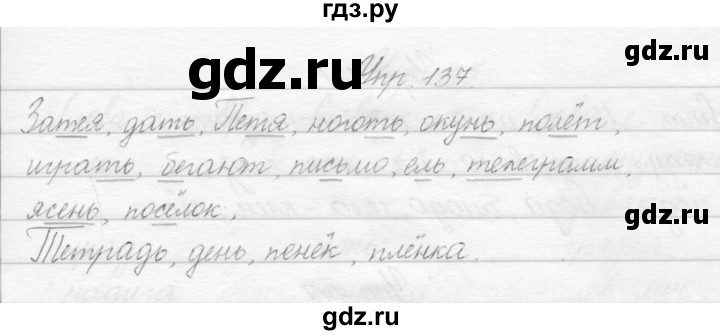 гдз.ру
gdz.ru
gdz.ru
Упр. 137.
Затея, дать, Петя, ноготь, окунь, полёт,
играть, бегают, письмо, ель, телеграмм,
ясень, посёлок,
gdz.ru
Тетрадь, день, пенёк, плёнка.
gdz.ru